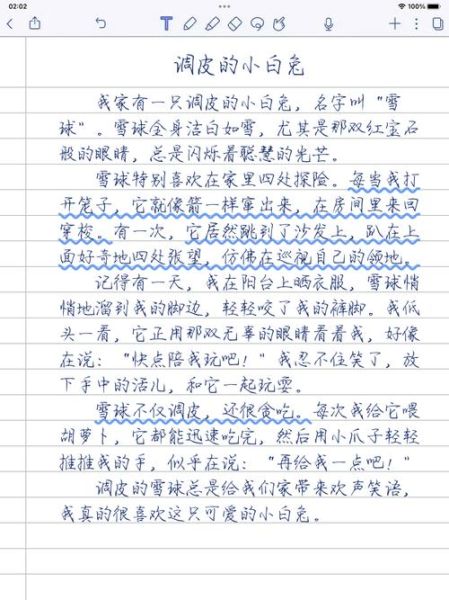 02:02
100%
T
调皮的小白兔
我家有一只调皮的小白兔，名字叫“雪
球”。雪球全身洁白如雪，尤其是那双红宝石
般的眼睛，总是闪烁着聪慧的光芒。
雪球特别喜欢在家里四处探险。每当我打
开笼子，它就像箭一样窜出来，在房间里来回
穿梭。有一次，它居然跳到了沙发上，趴在上
面好奇地四处张望，仿佛在巡视自己的领地。
记得有一天，我在阳台上晒衣服，雪球悄
悄地溜到我的脚边，轻轻咬了我的裤脚。我低
头一看，它正用那双无辜的眼睛看着我，好像
在说：“快点陪我玩吧！”我忍不住笑了，放
下手中的活儿，和它一起玩耍。
雪球不仅调皮，还很贪吃。每次我给它喂
胡萝卜，它都能迅速吃完，然后用小爪子轻轻
推推我的手，似乎在说：“再给我一点吧！”
调皮的雪球总是给我们家带来欢声笑语，
我真的很喜欢这只可爱的小白兔。